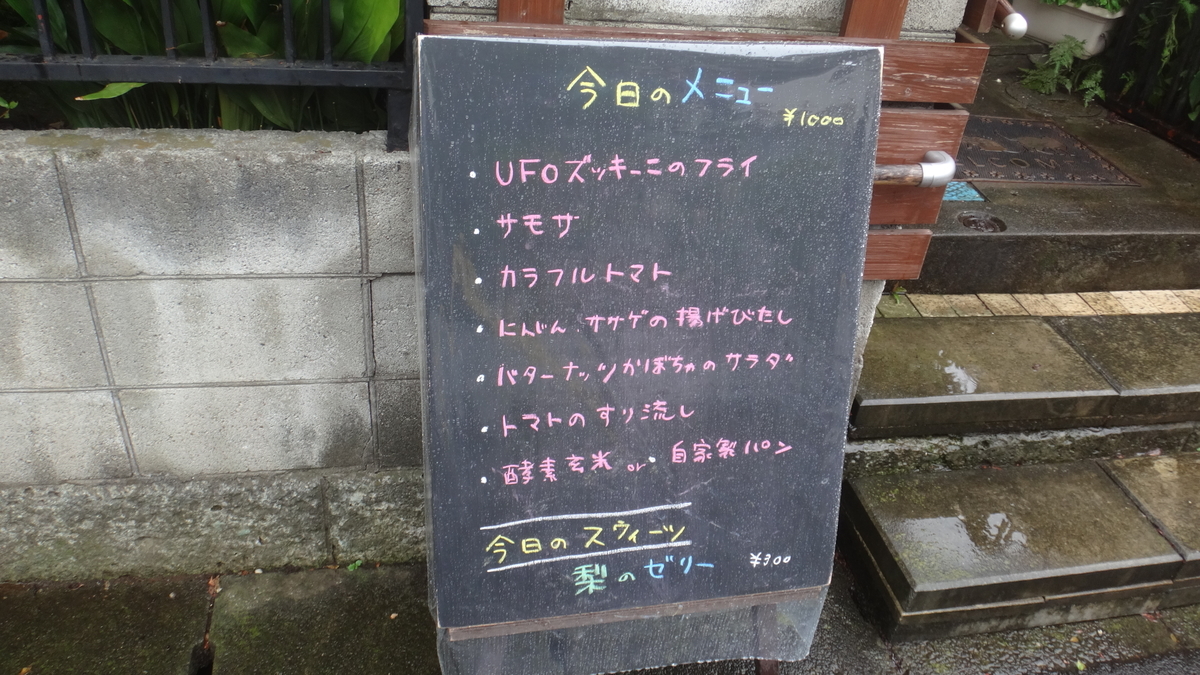 今日のメニュー
¥1000
・UFOズッキーニのフライ
・サモサ
・カラフルトマト
・にんじん.ササゲの揚げびたし
・バターナッツかぼちゃのサラダ
・トマトのすり流し
・酵素玄米 or 自家製パン
今日のスウィーツ
梨のゼリー ¥300